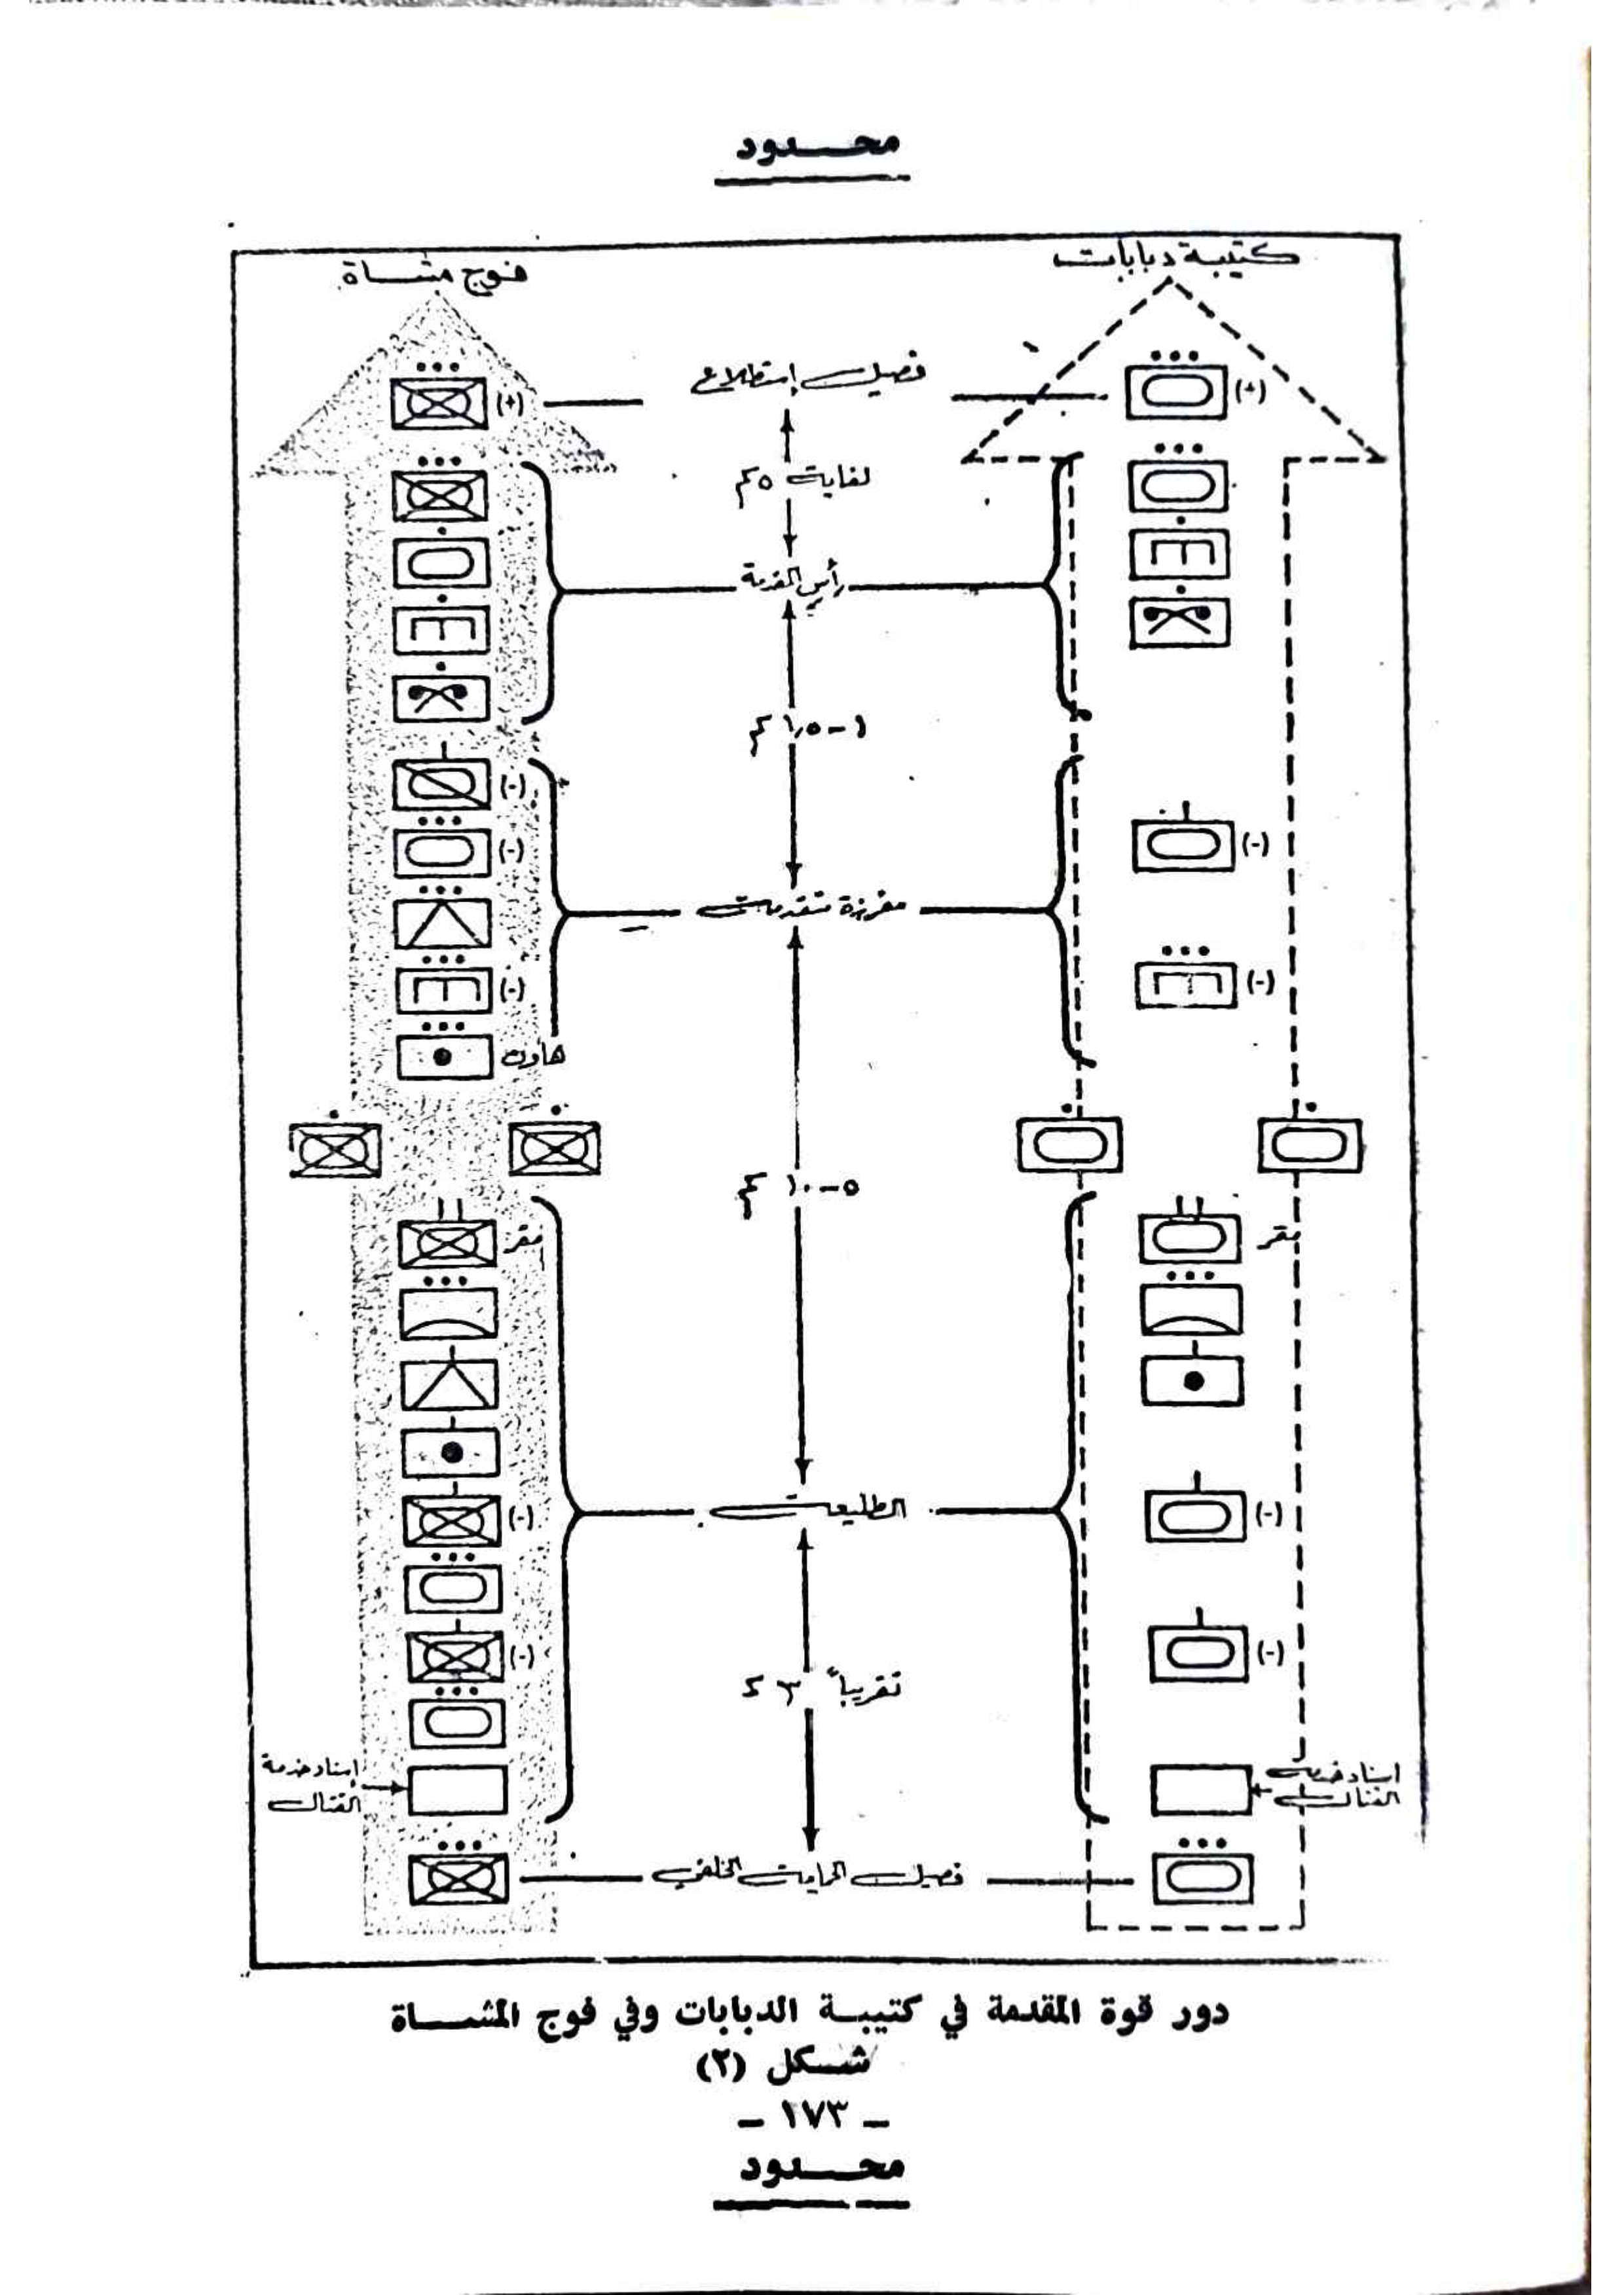 محـــدود
كتيبة دبابات
فوج مشاة
فصيل إستطلاع
(+)
(+)
لغاية ٥ كم
رأس المقدمة
١-١,٥ كم
(-)
(-)
(-)
مفرزة متقدمة
(-)
(-)
هاون
٥-١٠ كم
مقر
مقر
الطليعة
(-)
(-)
(-)
(-)
تقريباً ٣ ك
اسناد خدمة
القتال
اسناد خدمة
القتال
فصيل الحماية الخلفي
دور قوة المقدمة في كتيبـة الدبابات وفي فوج المشـــاة
شــكل (٢)
- ١٧٣ -
محـــدود